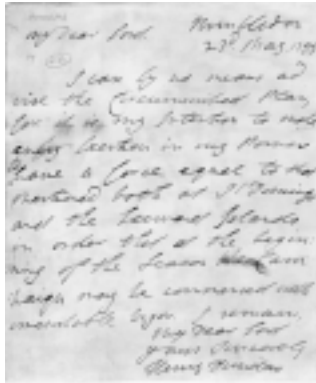 Wimbledon
My Dear Lord. 27th May, 179
I can by no means ad
vise the Circumscribed Plan,
for it is my Intention to make
every Exertion in my Power
have a force equal to that
mentioned both at St Domingo
and the Leeward Islands
in order that at the begin
ning of the Season
paign may be commenced with
Vigor. I remain,
My Dear Lord
yours Sincerely
Henry Dundas